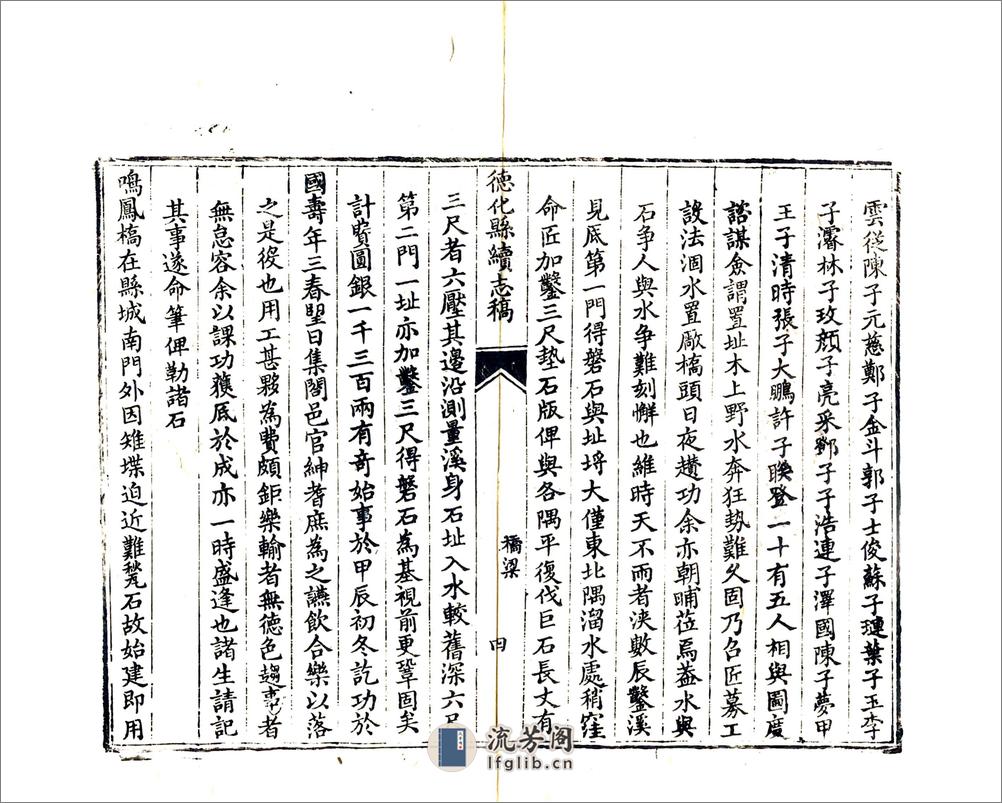 雲從陳子元慈鄭子金斗郭子士俊蘇子璉葉子玉李
子濬林子玫顔子亮采鄧子子浩連子澤國陳子夢甲
王子清時張子大鵬許子聯登一十有五人相與圖度
諮謀僉謂置址木上野水奔狂勢難久固乃召匠募工
設法涸水置厰橋頭日夜趲功余亦朝晡莅焉葢水與
石争人與水争難刻懈也維時天不雨者浹數辰鑿溪
見底第一門得磐石與址埒大僅東北隅溜水處稍窪
命匠加鑿三尺墊石版俾與各隅平復伐巨石長丈有
德化縣續志稿
橋梁
四
三尺者六壓其邊沿測量溪身石址入水較舊深六尺
第二門一址亦加鑿三尺得磐石為基視前更鞏固矣
計費圓銀一千三百兩有奇始事於甲辰初冬訖功於
國壽年三春望日集閤邑官紳耆庶為之讌飲合樂以落
之是役也用工甚夥為費頗鉅樂輸者無德色趨事者
無怠容余以課功獲底於成亦一時盛逢也諸生請記
其事遂命筆俾勒諸石
鳴鳳橋在縣城南門外因雉堞迫近難甃石故始建即用
流芳阁
lfglib.cn